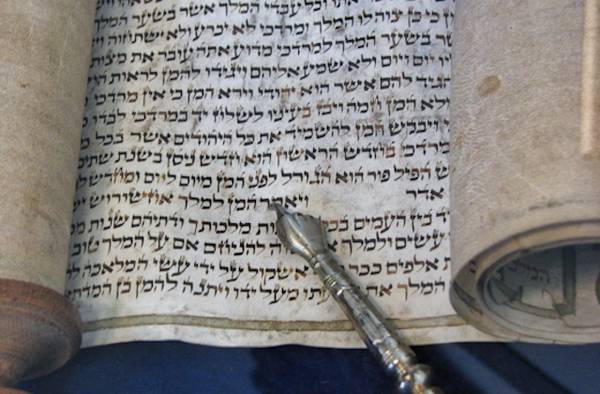 וכל עבדי המלך אשר בשער המלך
כי כן צוה לו המלך ומרדכי לא יכרע ולא ישתחוה
בשער המלך למרדכי מדוע אתה עובר את מצות
יום ויום ולא שמע אליהם ויגידו להמן לראות
הגיד להם אשר הוא יהודי וירא המן כי אין מרדכי
המן חמה ויבז בעיניו לשלוח יד במרדכי לבדו
ויבקש המן להשמיד את כל היהודים אשר בכל
מרדכי בחדש הראשון הוא חדש ניסן בשנת שתים
הפיל פור הוא הגורל לפני המן מיום ליום ומחדש
אדר ויאמר המן למלך אחשורוש
בין העמים בכל מלכותך ודתיהם שנות
עשים ולמלך להניחם אם על המלך טוב
אלפים ככר אשקול על ידי עשי המלאכה
המלך את מעל ידו ויתנה להמן בן המדתא